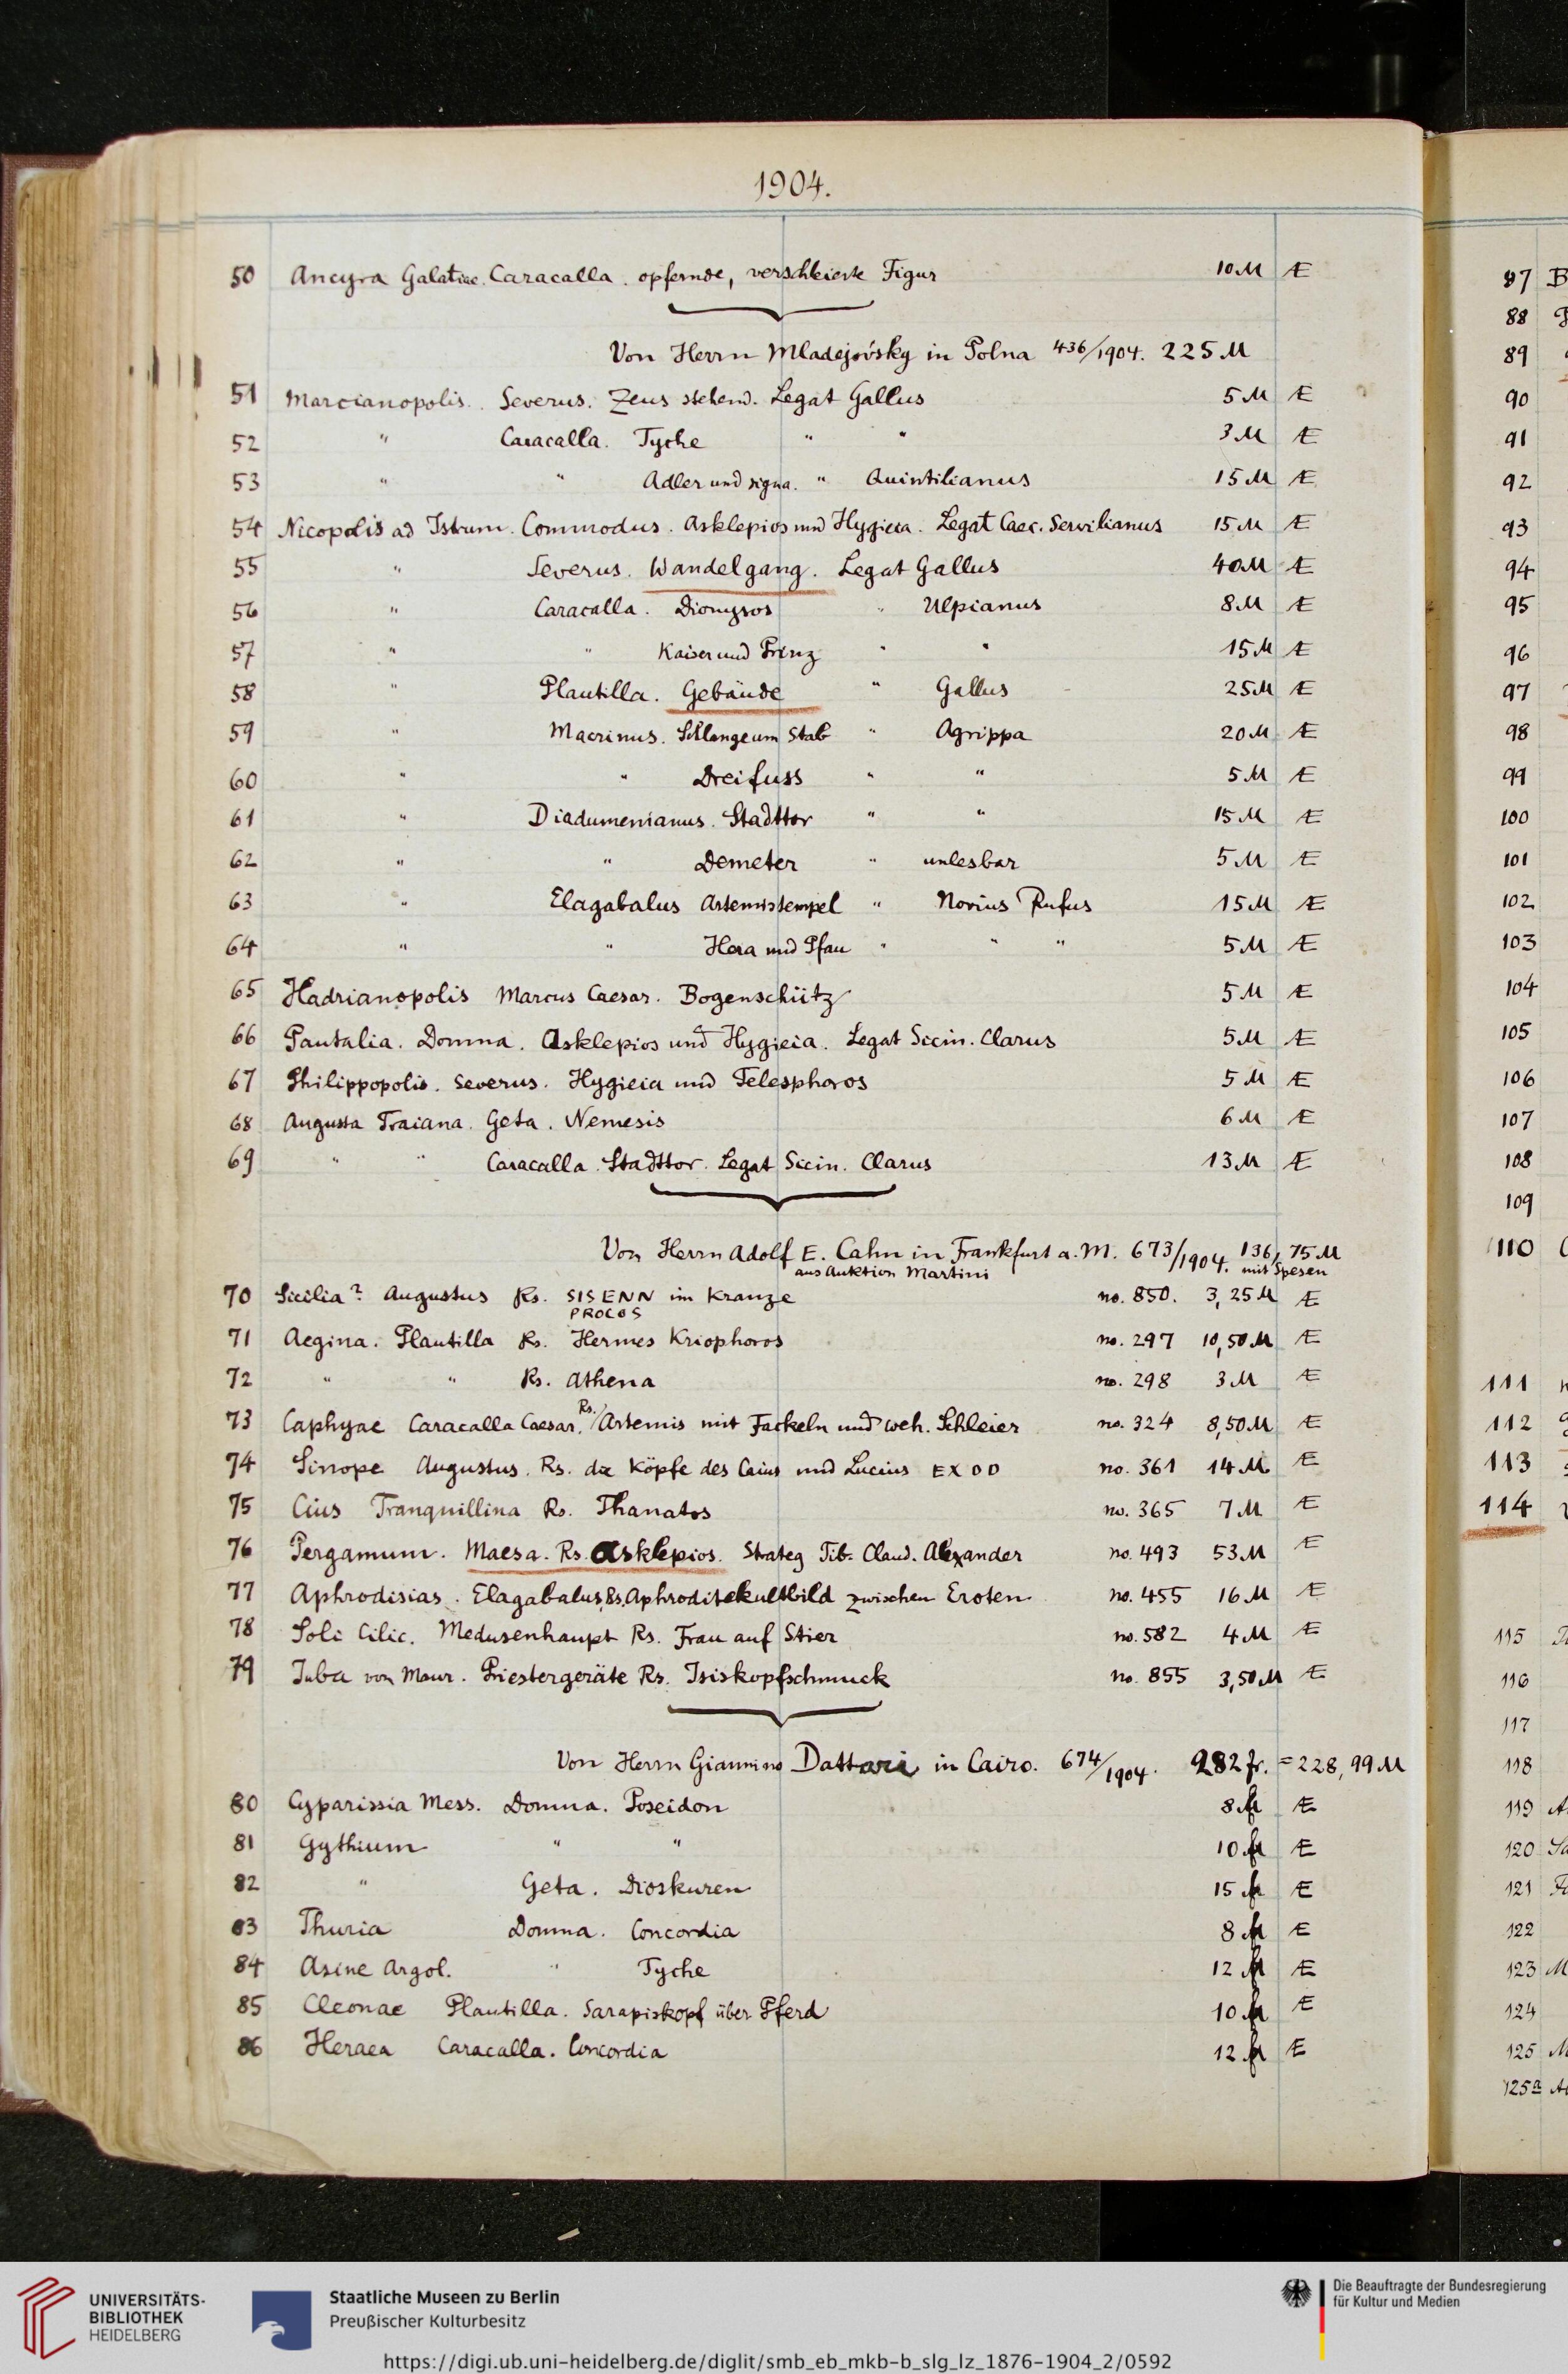 1904.
50 Ancyra Galatiae. Caracalla. opfernde, verschleierte Figur 10 M Æ
Von Herrn Mladejovský in Polna 436/1904. 225 M
51 Marcianopolis. Severus. Zeus stehend. Legat Gallus 5 M Æ
52 " Caracalla. Tyche " " 3 M Æ
53 " " Adler und signa. " Quintilianus 15 M Æ
54 Nicopolis ad Istrum. Commodus. Asklepios und Hygieia. Legat Caec. Servilianus 15 M Æ
55 " Severus. Wandelgang. Legat Gallus 40 M Æ
56 " Caracalla. Dionysos " Ulpianus 8 M Æ
57 " " Kaiser und Prinz " " 15 M Æ
58 " Plautilla. Gebäude " Gallus 25 M Æ
59 " Macrinus. Schlange um Stab " Agrippa 20 M Æ
60 " " Dreifuss " " 5 M Æ
61 " Diadumenianus. Stadttor " " 15 M Æ
62 " " Demeter " unlesbar 5 M Æ
63 " Elagabalus Artemistempel " Novius Rufus 15 M Æ
64 " " Hera und Pfau " " " 5 M Æ
65 Hadrianopolis Marcus Caesar. Bogenschütz 5 M Æ
66 Pautalia. Domna. Asklepios und Hygieia. Legat Sicin. Clarus 5 M Æ
67 Philippopolis. Severus. Hygieia und Telesphoros 5 M Æ
68 Augusta Traiana. Geta. Nemesis 6 M Æ
69 " " Caracalla. Stadttor. Legat Sicin. Clarus 13 M Æ
Von Herrn Adolf E. Cahn in Frankfurt a. M. 673/1904. 136,75 M
aus Auktion Martini mit Spesen
70 Sicilia? Augustus Rs. SISENN im Kranze no. 850. 3,25 M Æ
PROCOS
71 Aegina. Plautilla Rs. Hermes Kriophoros no. 297 10,50 M Æ
72 " " Rs. Athena no. 298 3 M Æ
73 Caphyae Caracalla Caesar. Rs. Artemis mit Fackeln und weh. Schleier no. 324 8,50 M Æ
74 Sinope Augustus. Rs. die Köpfe des Caius und Lucius EX DD no. 361 14 M Æ
75 Cius Tranquillina Rs. Thanatos no. 365 7 M Æ
76 Pergamum. Maesa. Rs. Asklepios. Strateg Tib. Claud. Alexander no. 493 53 M Æ
77 Aphrodisias. Elagabalus, Rs. Aphroditekultbild zwischen Eroten no. 455 16 M Æ
78 Soli Cilic. Medusenhaupt Rs. Frau auf Stier no. 582 4 M Æ
79 Juba von Maur. Priestergeräte Rs. Isiskopfschmuck no. 855 3,50 M Æ
Von Herrn Giannino Dattari in Cairo. 674/1904. 282 fr. = 228,99 M
80 Cyparissia Mess. Domna. Poseidon 8 fr Æ
81 Gythium " " 10 fr Æ
82 " Geta. Dioskuren 15 fr Æ
83 Thuria Domna. Concordia 8 fr Æ
84 Asine Argol. " Tyche 12 fr Æ
85 Cleonae Plautilla. Sarapiskopf über Pferd 10 fr Æ
86 Heraea Caracalla. Concordia 12 fr Æ
87 B
88
89
90
91
92
93
94
95
96
97
98
99
100
101
102
103
104
105
106
107
108
109
110
111
112
113
114
115
116
117
118
119 A
120 Sa
121
122
123 M
124
125 M
125a A
UNIVERSITÄTS-
BIBLIOTHEK
HEIDELBERG
Staatliche Museen zu Berlin
Preußischer Kulturbesitz
Die Beauftragte der Bundesregierung
für Kultur und Medien
https://digi.ub.uni-heidelberg.de/diglit/smb_eb_mkb-b_slg_lz_1876-1904_2/0592